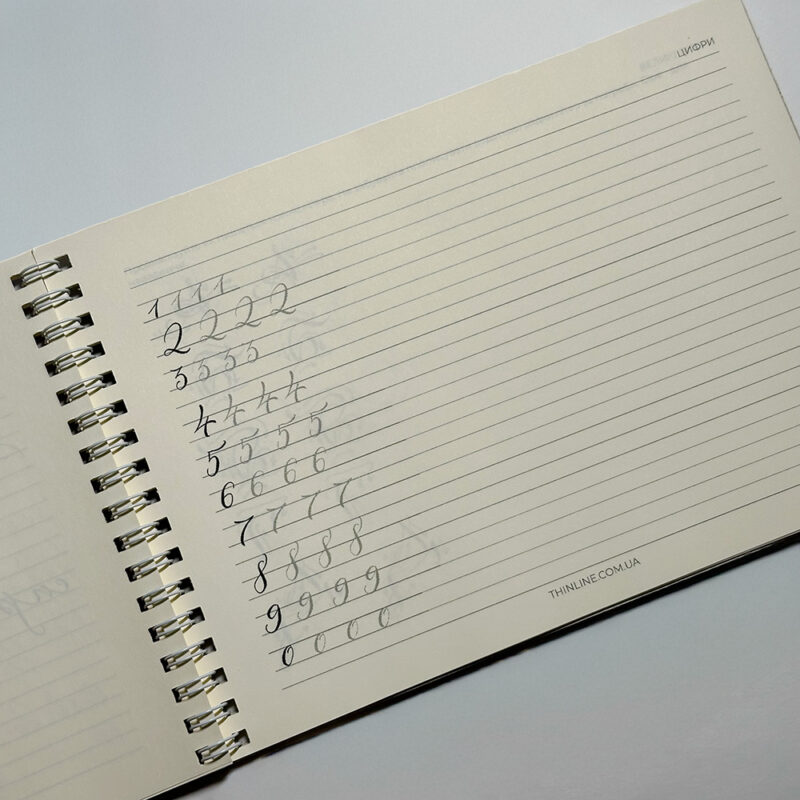 ЦИФРИ
1 1 1 1
2 2 2 2
3 3 3 3
4 4 4 4
5 5 5 5
6 6 6 6
7 7 7 7
8 8 8 8
9 9 9 9
0 0 0 0
THINLINE.COM.UA